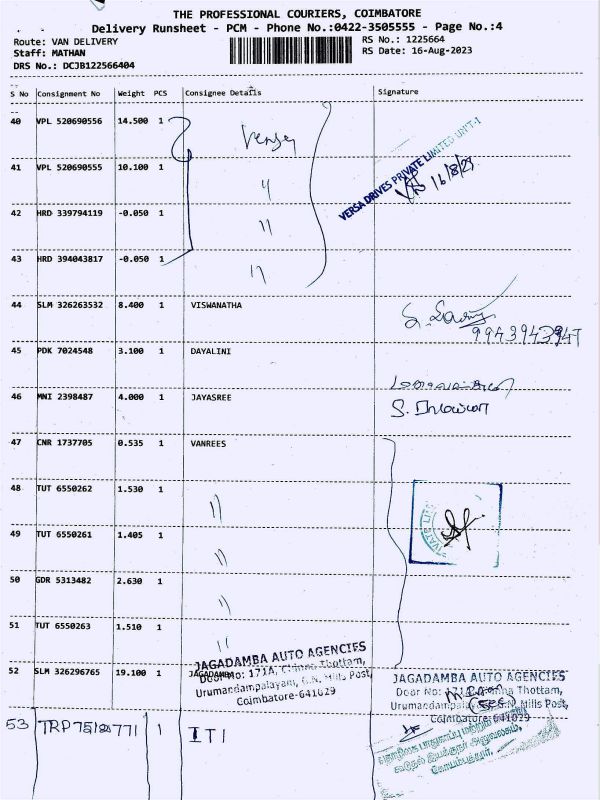 THE PROFESSIONAL COURIERS, COIMBATORE
Delivery Runsheet - PCM - Phone No.:0422-3505555 - Page No.:4
Route: VAN DELIVERY
RS No.: 1225664
Staff: MATHAN
RS Date: 16-Aug-2023
DRS No.: DCJB122566404
S No Consignment No Weight PCS Consignee Details Signature
40 VPL 520690556 14.500 1 Versa
VERSA DRIVES PRIVATE LIMITED UNIT-1
16/8/23
41 VPL 520690555 10.100 1 "
42 HRD 339794119 -0.050 1 "
43 HRD 394043817 -0.050 1 "
44 SLM 326263532 8.400 1 VISWANATHA
9943943947
45 PDK 7024548 3.100 1 DAYALINI
46 MNI 2398487 4.000 1 JAYASREE
47 CNR 1737705 0.535 1 VANREES
48 TUT 6550262 1.530 1 "
49 TUT 6550261 1.405 1 "
50 GDR 5313482 2.630 1 "
51 TUT 6550263 1.510 1 "
52 SLM 326296765 19.100 1 JAGADAMBA
JAGADAMBA AUTO AGENCIES
Door No: 171A, Chinna Thottam,
Urumandampalayam, G.N. Mills Post,
Coimbatore-641029
JAGADAMBA AUTO AGENCIES
Door No: 171A, Chinna Thottam,
Urumandampalayam, G.N. Mills Post,
Coimbatore-641029
53 1 ITI
கோயம்புத்தூர்.